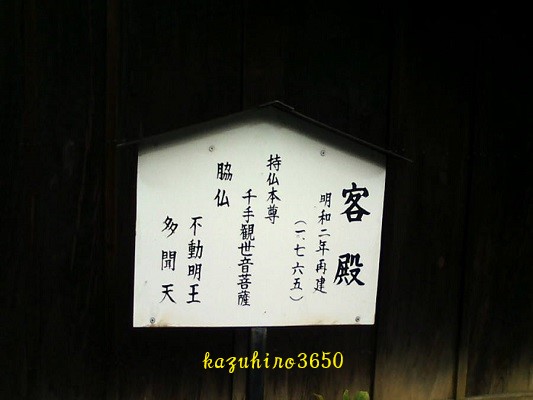 客殿
明和二年再建
(一、七六五)
持仏本尊
千手觀世音菩薩
脇仏
不動明王
多聞天
kazuhiro3650